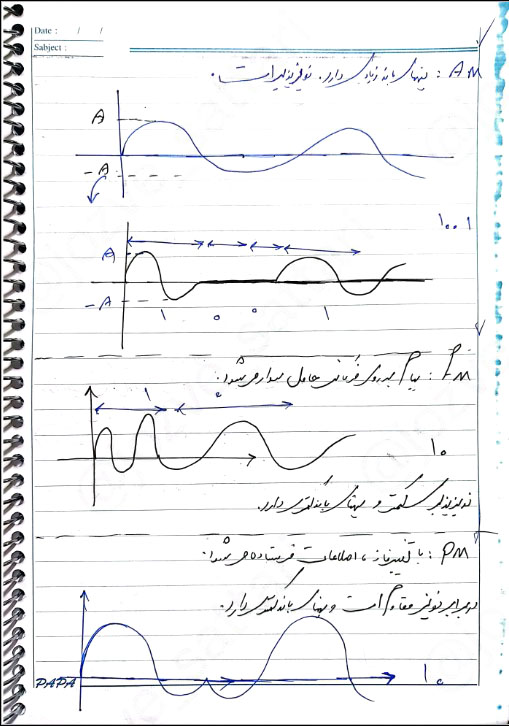 Date : / /
Sabject :
AM : پهنای باند زیادی دارد. نویزپذیر است.
A
-A
۱۰۰۱
A
-A
۱ ۰ ۰ ۱
FM : پیام بر روی فرکانس حامل سوار می‌شود.
۱ ۰
۱۰
نویزپذیری کمتر و پهنای باند کمتری دارد.
PM : با تغییر فاز، اطلاعات فرستاده می‌شود.
در برابر نویز مقاوم است و پهنای باند کمتری دارد.
۱۰
PAPA